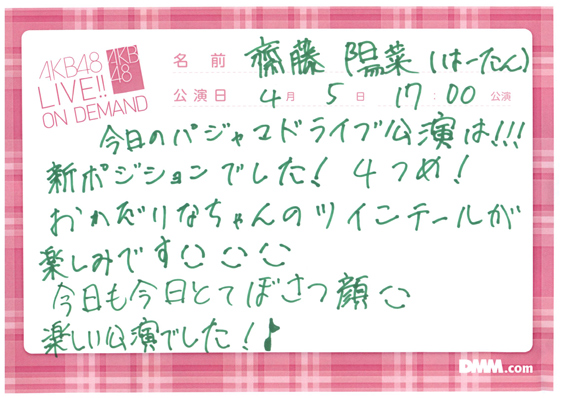 AKB48
LIVE!!
ON DEMAND
AKB
48
名前 齋藤 陽菜(はーたん)
公演日 4月 5日 17:00 公演
今日のパジャマドライブ公演は!!!
新ポジションでした! 4つめ!
おかだりなちゃんのツインテールが
楽しみです
今日も今日とてぼさつ顔
楽しい公演でした!♪
DMM.com